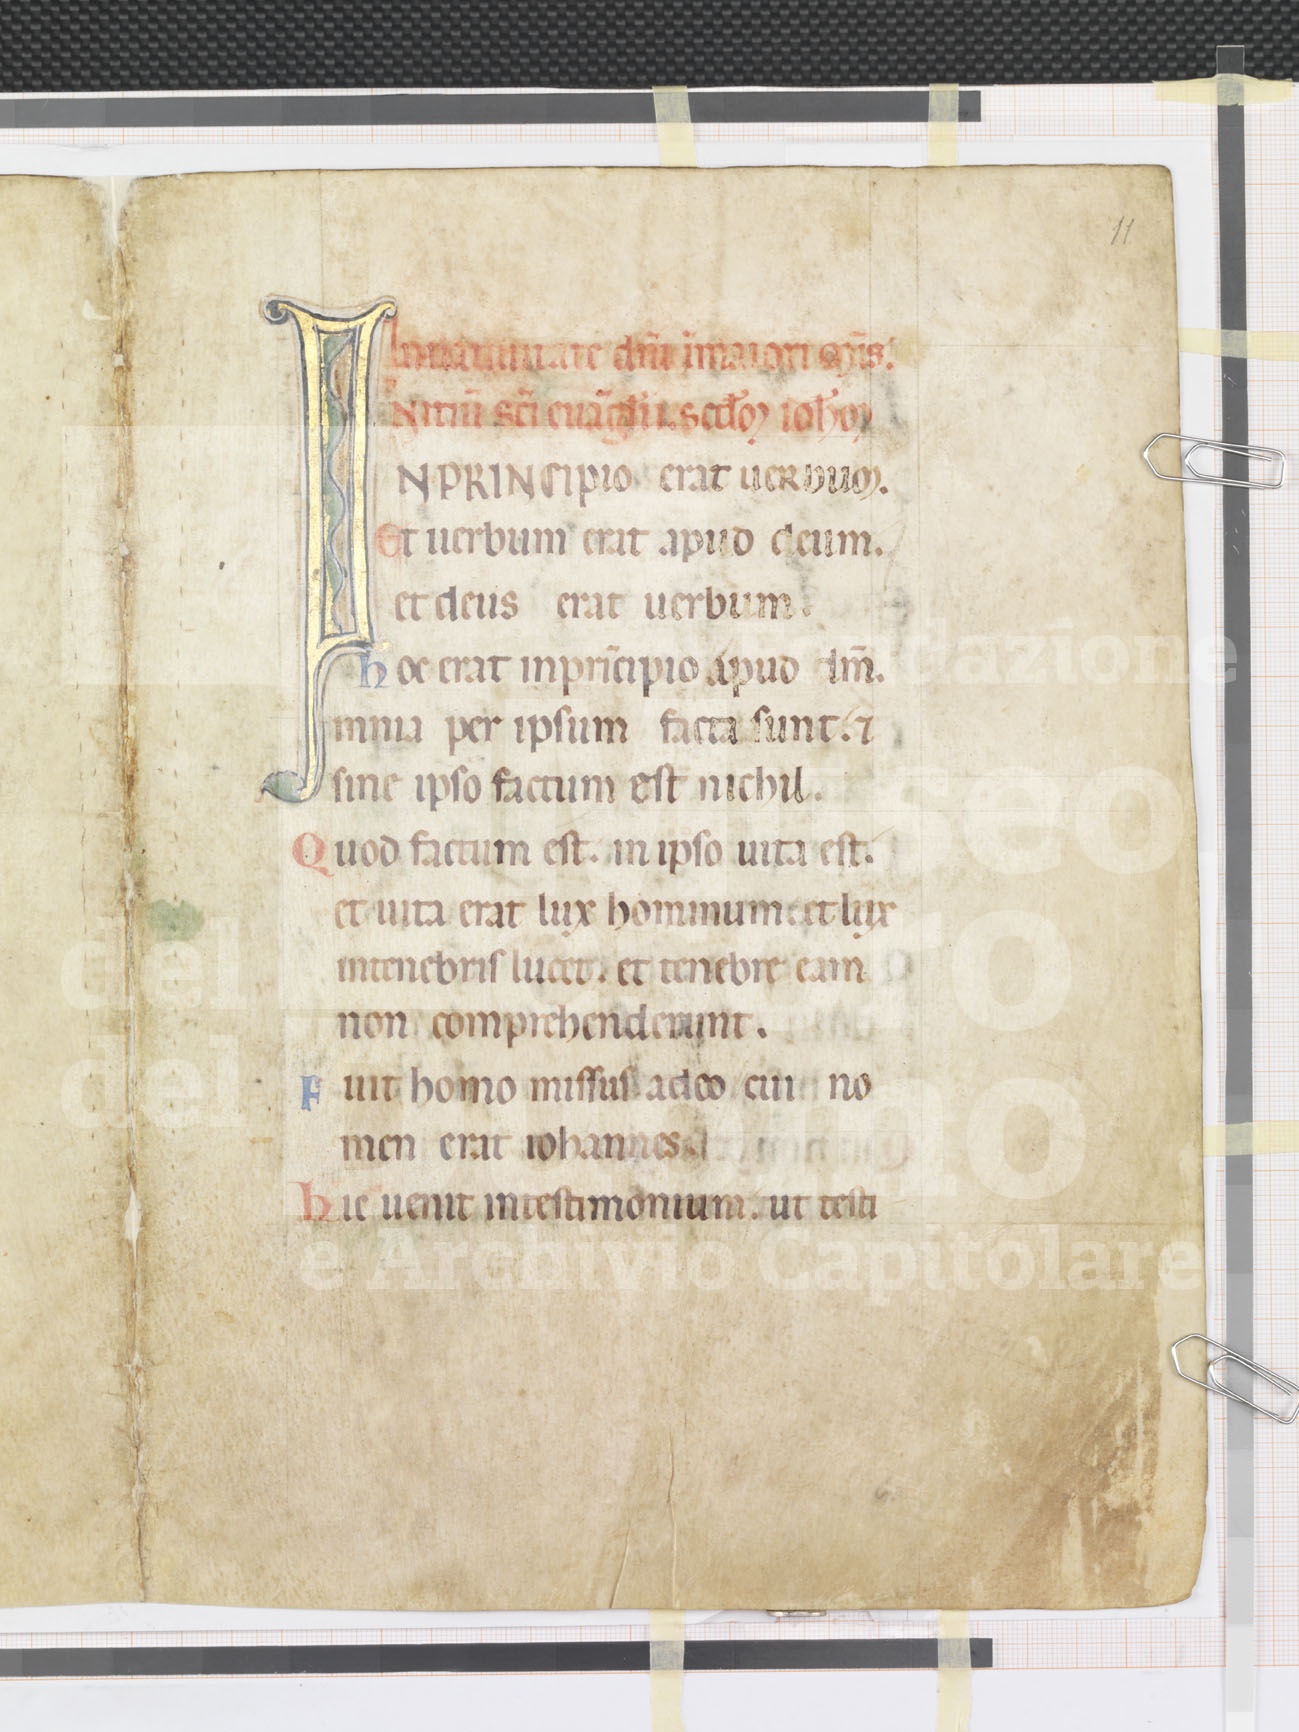 11
In natiuitate dn̄i ī maiori mis̄.
Nitiū sc̄i euāḡlii. scd̄m ioh̄m
IN PRINCIPIO erat uerbum.
et uerbum erat apud deum.
et deus erat uerbum.
hoc erat in prīcipio apud dm̄.
mnia per ipsum facta sunt. ⁊
sine ipso factum est nichil.
Quod factum est. in ipso uita est.
et uita erat lux hominum. et lux
in tenebris lucet. et tenebre eam
non comprehenderunt.
Fuit homo missus a deo cui no
men erat iohannes.
hic uenit in testimonium. ut testi
Fondazione
Museo
del Tesoro
del Duomo
e Archivio Capitolare